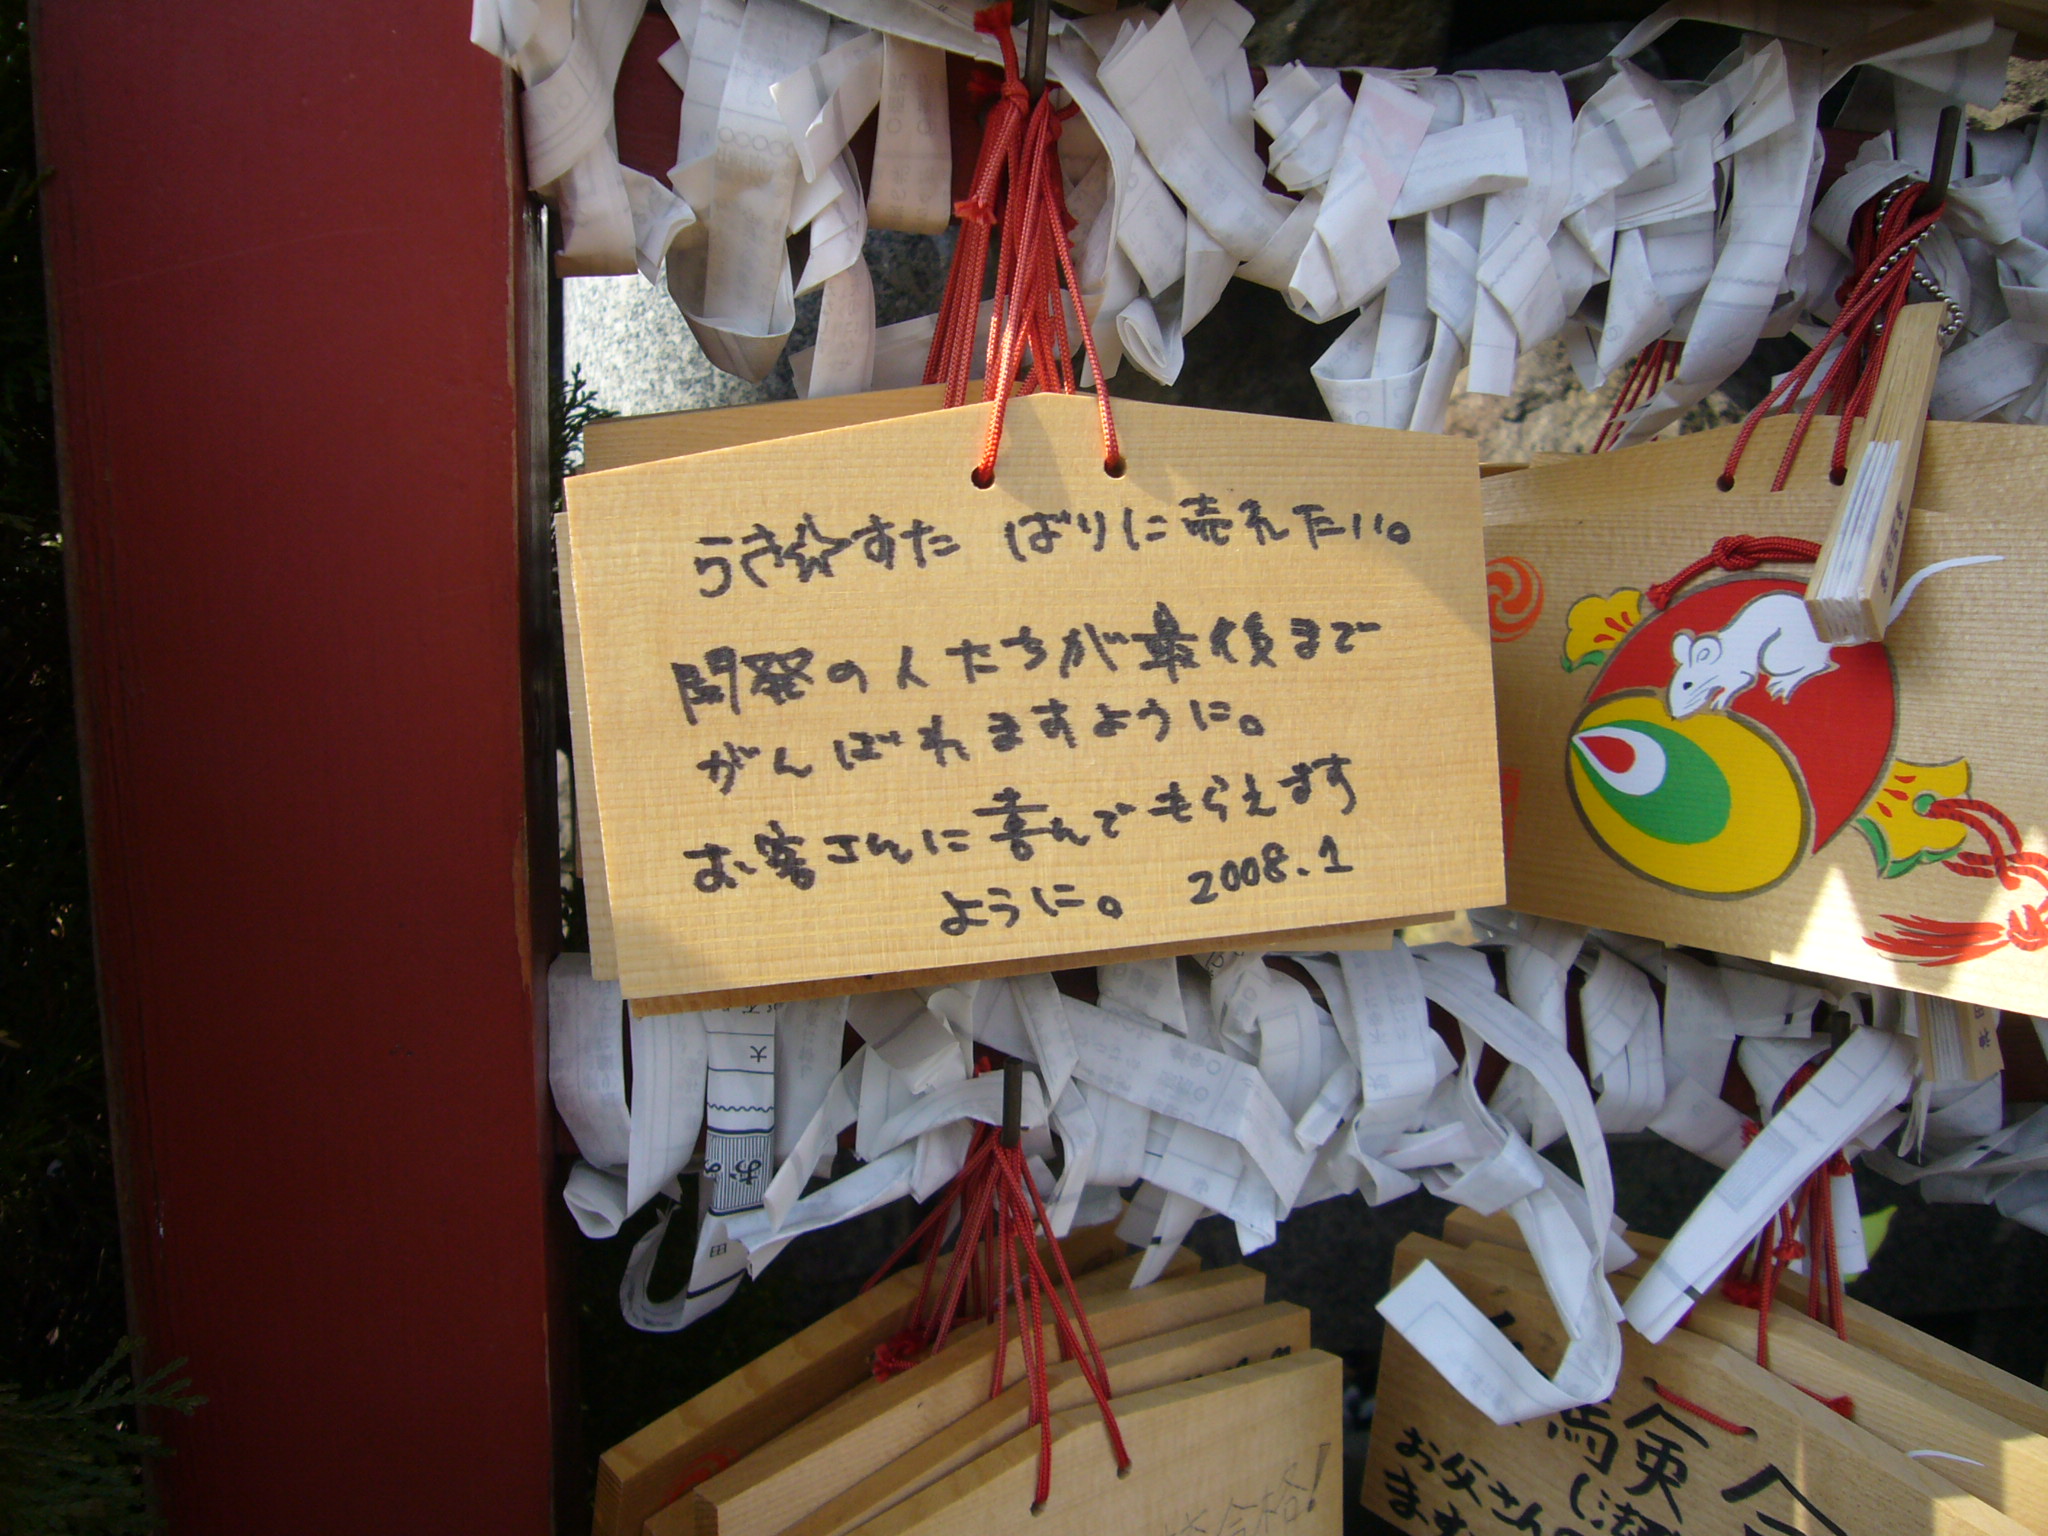 らき☆すた ばりに売れたい。
開発の人たちが最後まで
がんばれますように。
お客さんに喜んでもらえます
ように。 2008.1
大
お
田
合格!
験
お父さんの